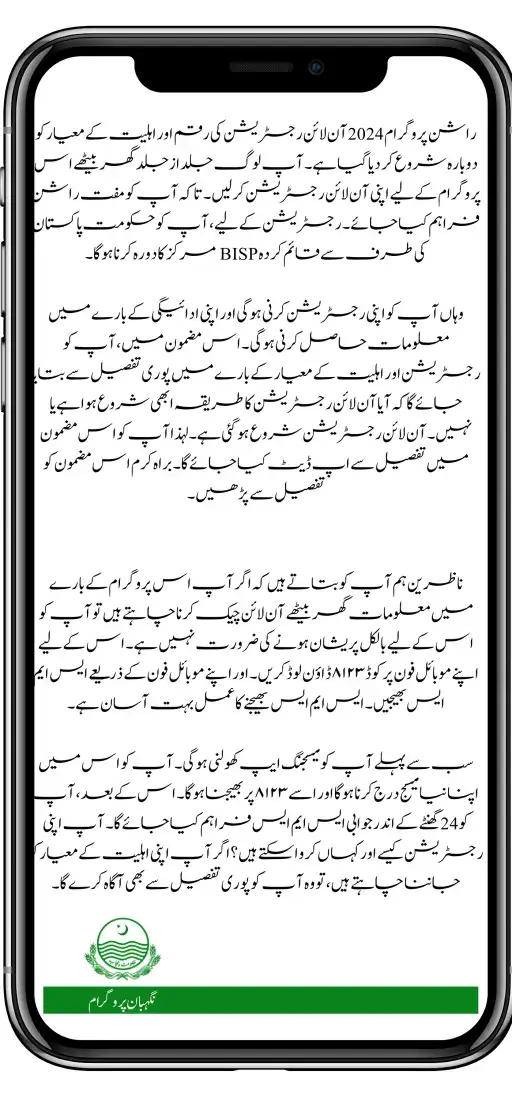 راشن پروگرام 2024 آن لائن رجسٹریشن کی رقم اور اہلیت کے معیار کو
دوبارہ شروع کر دیا گیا ہے۔ آپ لوگ جلد از جلد گھر بیٹھے اس
پروگرام کے لیے اپنی آن لائن رجسٹریشن کرلیں۔ تاکہ آپ کو مفت راشن
فراہم کیا جائے۔ رجسٹریشن کے لیے، آپ کو حکومت پاکستان
کی طرف سے قائم کردہ BISP مرکز کا دورہ کرنا ہوگا۔
وہاں آپ کو اپنی رجسٹریشن کرنی ہوگی اور اپنی ادائیگی کے بارے میں
معلومات حاصل کرنی ہوگی۔ اس مضمون میں، آپ کو
رجسٹریشن اور اہلیت کے معیار کے بارے میں پوری تفصیل سے بتایا
جائے گا کہ آیا آن لائن رجسٹریشن کا طریقہ ابھی شروع ہوا ہے یا
نہیں۔ آن لائن رجسٹریشن شروع ہو گئی ہے۔ لہذا آپ کو اس مضمون
میں تفصیل سے اپ ڈیٹ کیا جائے گا۔ براہ کرم اس مضمون کو
تفصیل سے پڑھیں۔
ناظرین ہم آپ کو بتاتے ہیں کہ اگر آپ اس پروگرام کے بارے
میں معلومات گھر بیٹھے آن لائن چیک کرنا چاہتے ہیں تو آپ کو
اس کے لیے بالکل پریشان ہونے کی ضرورت نہیں ہے۔ اس کے لیے
اپنے موبائل فون پر کوڈ ۸۱۲۳ ڈاؤن لوڈ کریں۔ اور اپنے موبائل فون کے ذریعے ایس ایم
ایس بھیجیں۔ ایس ایم ایس بھیجنے کا عمل بہت آسان ہے۔
سب سے پہلے آپ کو میسجنگ ایپ کھولنی ہوگی۔ آپ کو اس میں
اپنا نیا میسج درج کرنا ہوگا اور اسے ۸۱۲۳ پر بھیجنا ہوگا۔ اس کے بعد، آپ
کو 24 گھنٹے کے اندر جوابی ایس ایم ایس فراہم کیا جائے گا۔ آپ اپنی
رجسٹریشن کیسے اور کہاں کروا سکتے ہیں؟ اگر آپ اپنی اہلیت کے معیار کو
جاننا چاہتے ہیں، تو وہ آپ کو پوری تفصیل سے بھی آگاہ کرے گا۔
نگہبان پروگرام